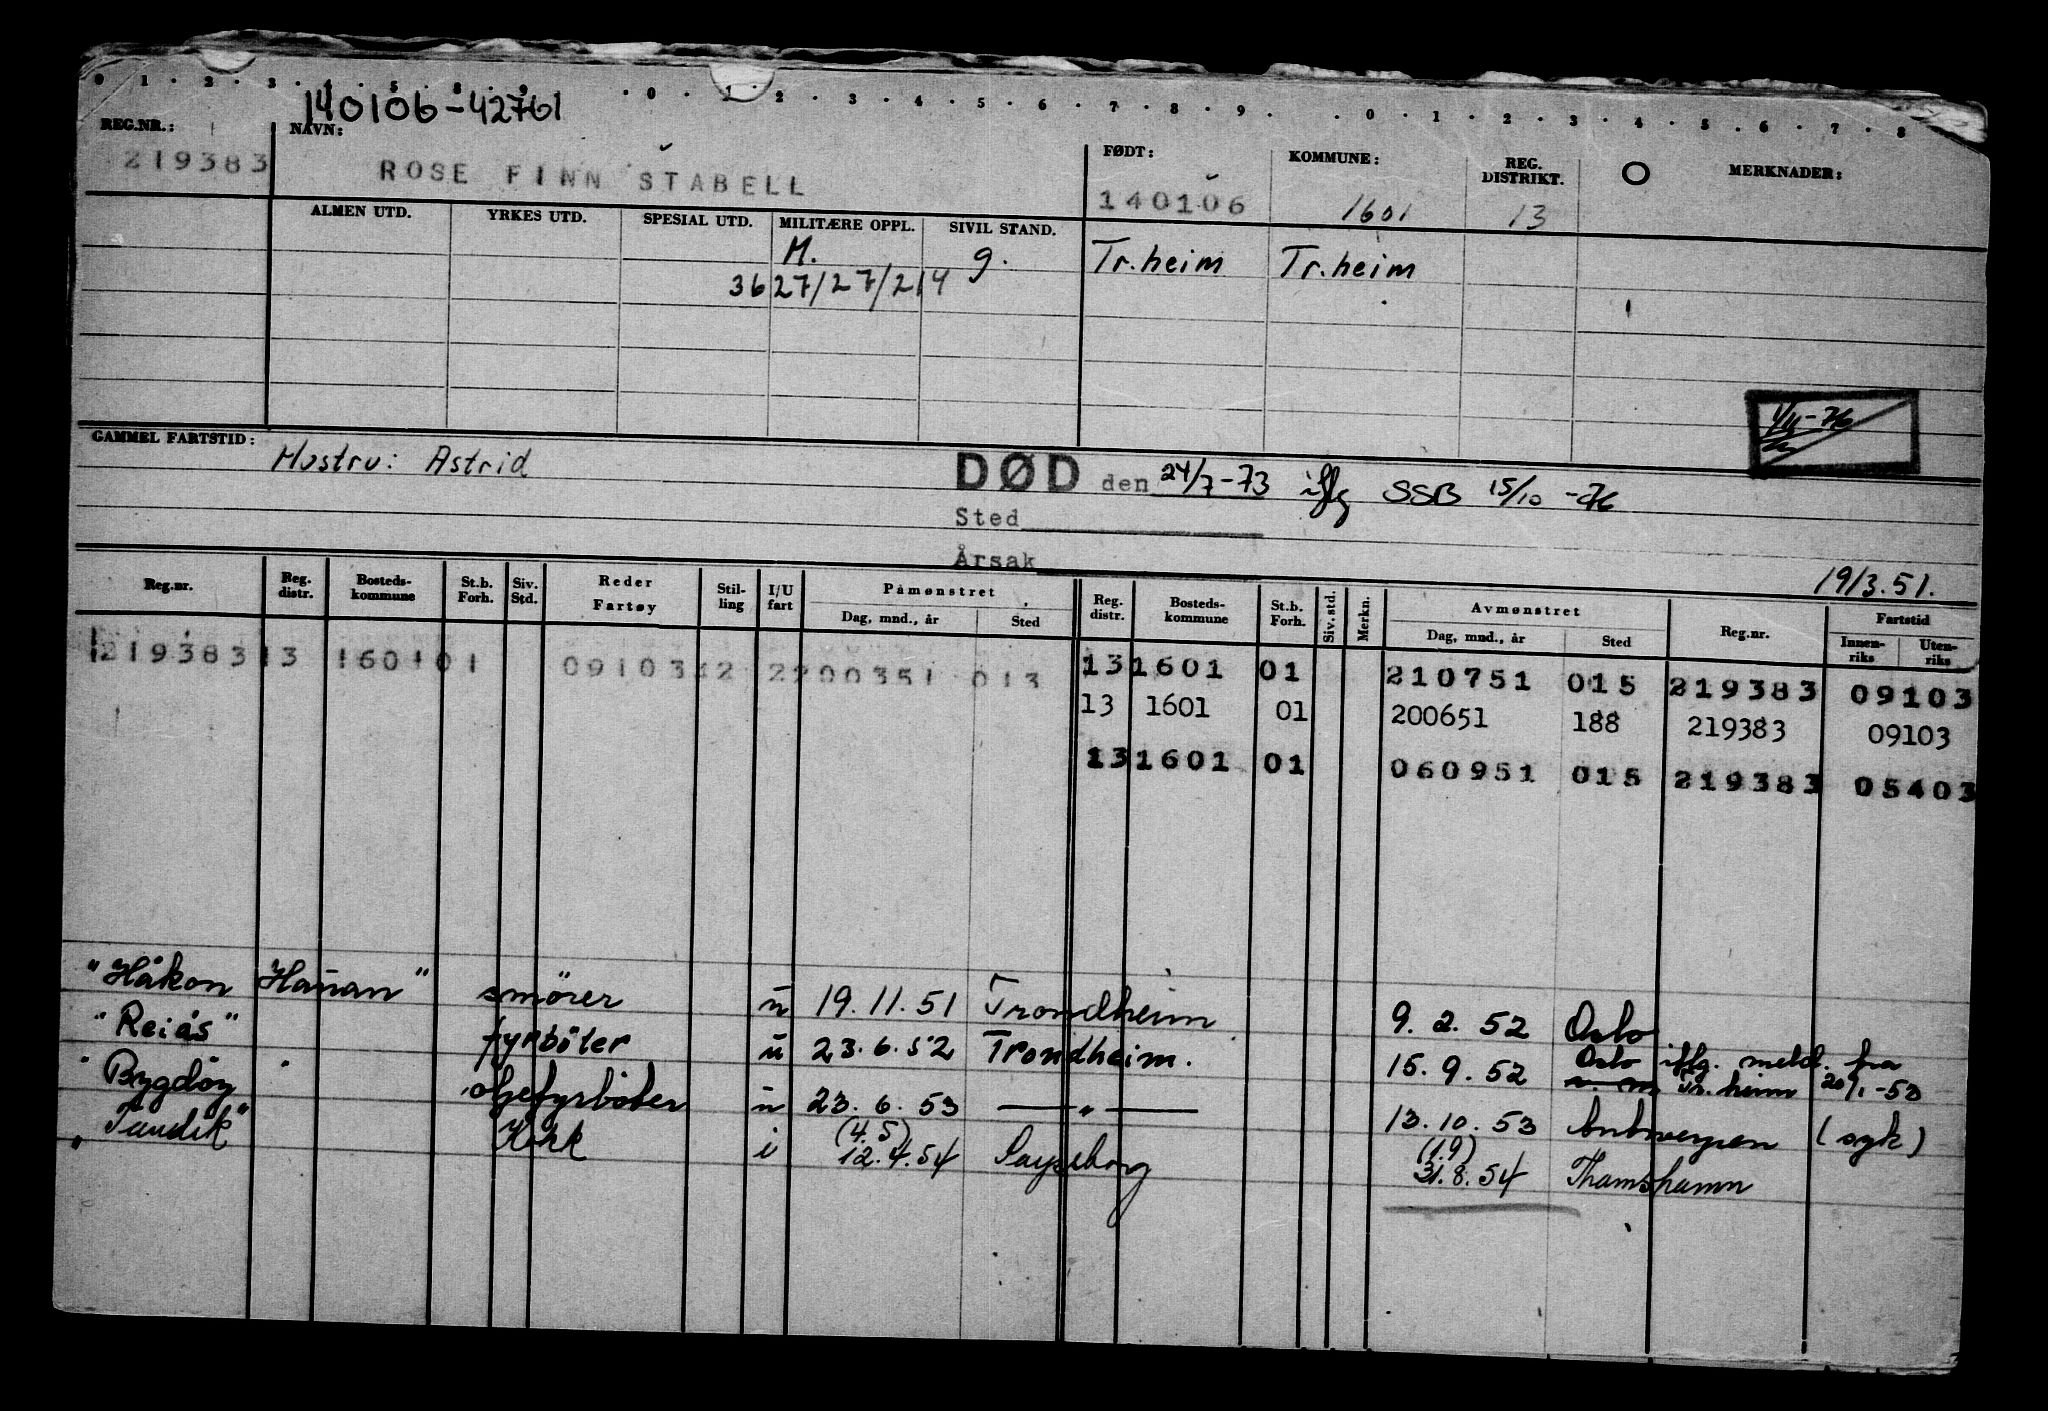 0 · 1 · 2 · 3 · 4 · 5 · 8 · 9 · 0 · 1 · 2 · 3 · 4 · 5 · 6 · 7 · 8 · 9 · · 0 · 1 · 2 · 3 · 4 · 5 · 6 · 7 · 8
140106-42761
REG.NR.: NAVN: FØDT: KOMMUNE: REG. DISTRIKT. O MERKNADER:
219383 ROSE FINN STABELL 140106 1601 13
ALMEN UTD. YRKES UTD. SPESIAL UTD. MILITÆRE OPPL. SIVIL STAND.
M. g. Tr.heim Tr.heim
3627/27/214
GAMMEL FARTSTID: Hustru: Astrid
DØD den 24/7-73 iflg SSB 15/10 -76
Sted
Årsak
19/3.51.
Reg.nr. Reg. distr. Bosteds-kommune St.b. Forh. Siv. Std. Reder Fartøy Stil-ling I/U fart Påmønstret Reg. distr. Bosteds-kommune St.b. Forh. Siv. std. Merkn. Avmønstret Reg.nr. Fartstid
Dag, mnd., år Sted Dag, mnd., år Sted Innen-riks Uten-riks
219383 13 1601 01 09103 42 2 200351 013 13 1601 01 210751 015 219383 09103
13 1601 01 200651 188 219383 09103
13 1601 01 060951 015 219383 05403
"Håkon Hauan" smører u 19.11.51 Trondheim 9. 2. 52 Oslo
"Reiås" fyrbøter u 23.6.52 Trondheim. 15.9.52 Oslo iflg. meld. fra
Tr.heim 20/1-53
"Bygdøy oljefyrbøter u 23.6.53 — " — 13.10.53 Antwerpen (syk)
(4.5) (1.9)
Kokk i 12.4.54 Sarpsborg 31.8.54 Thamshamn